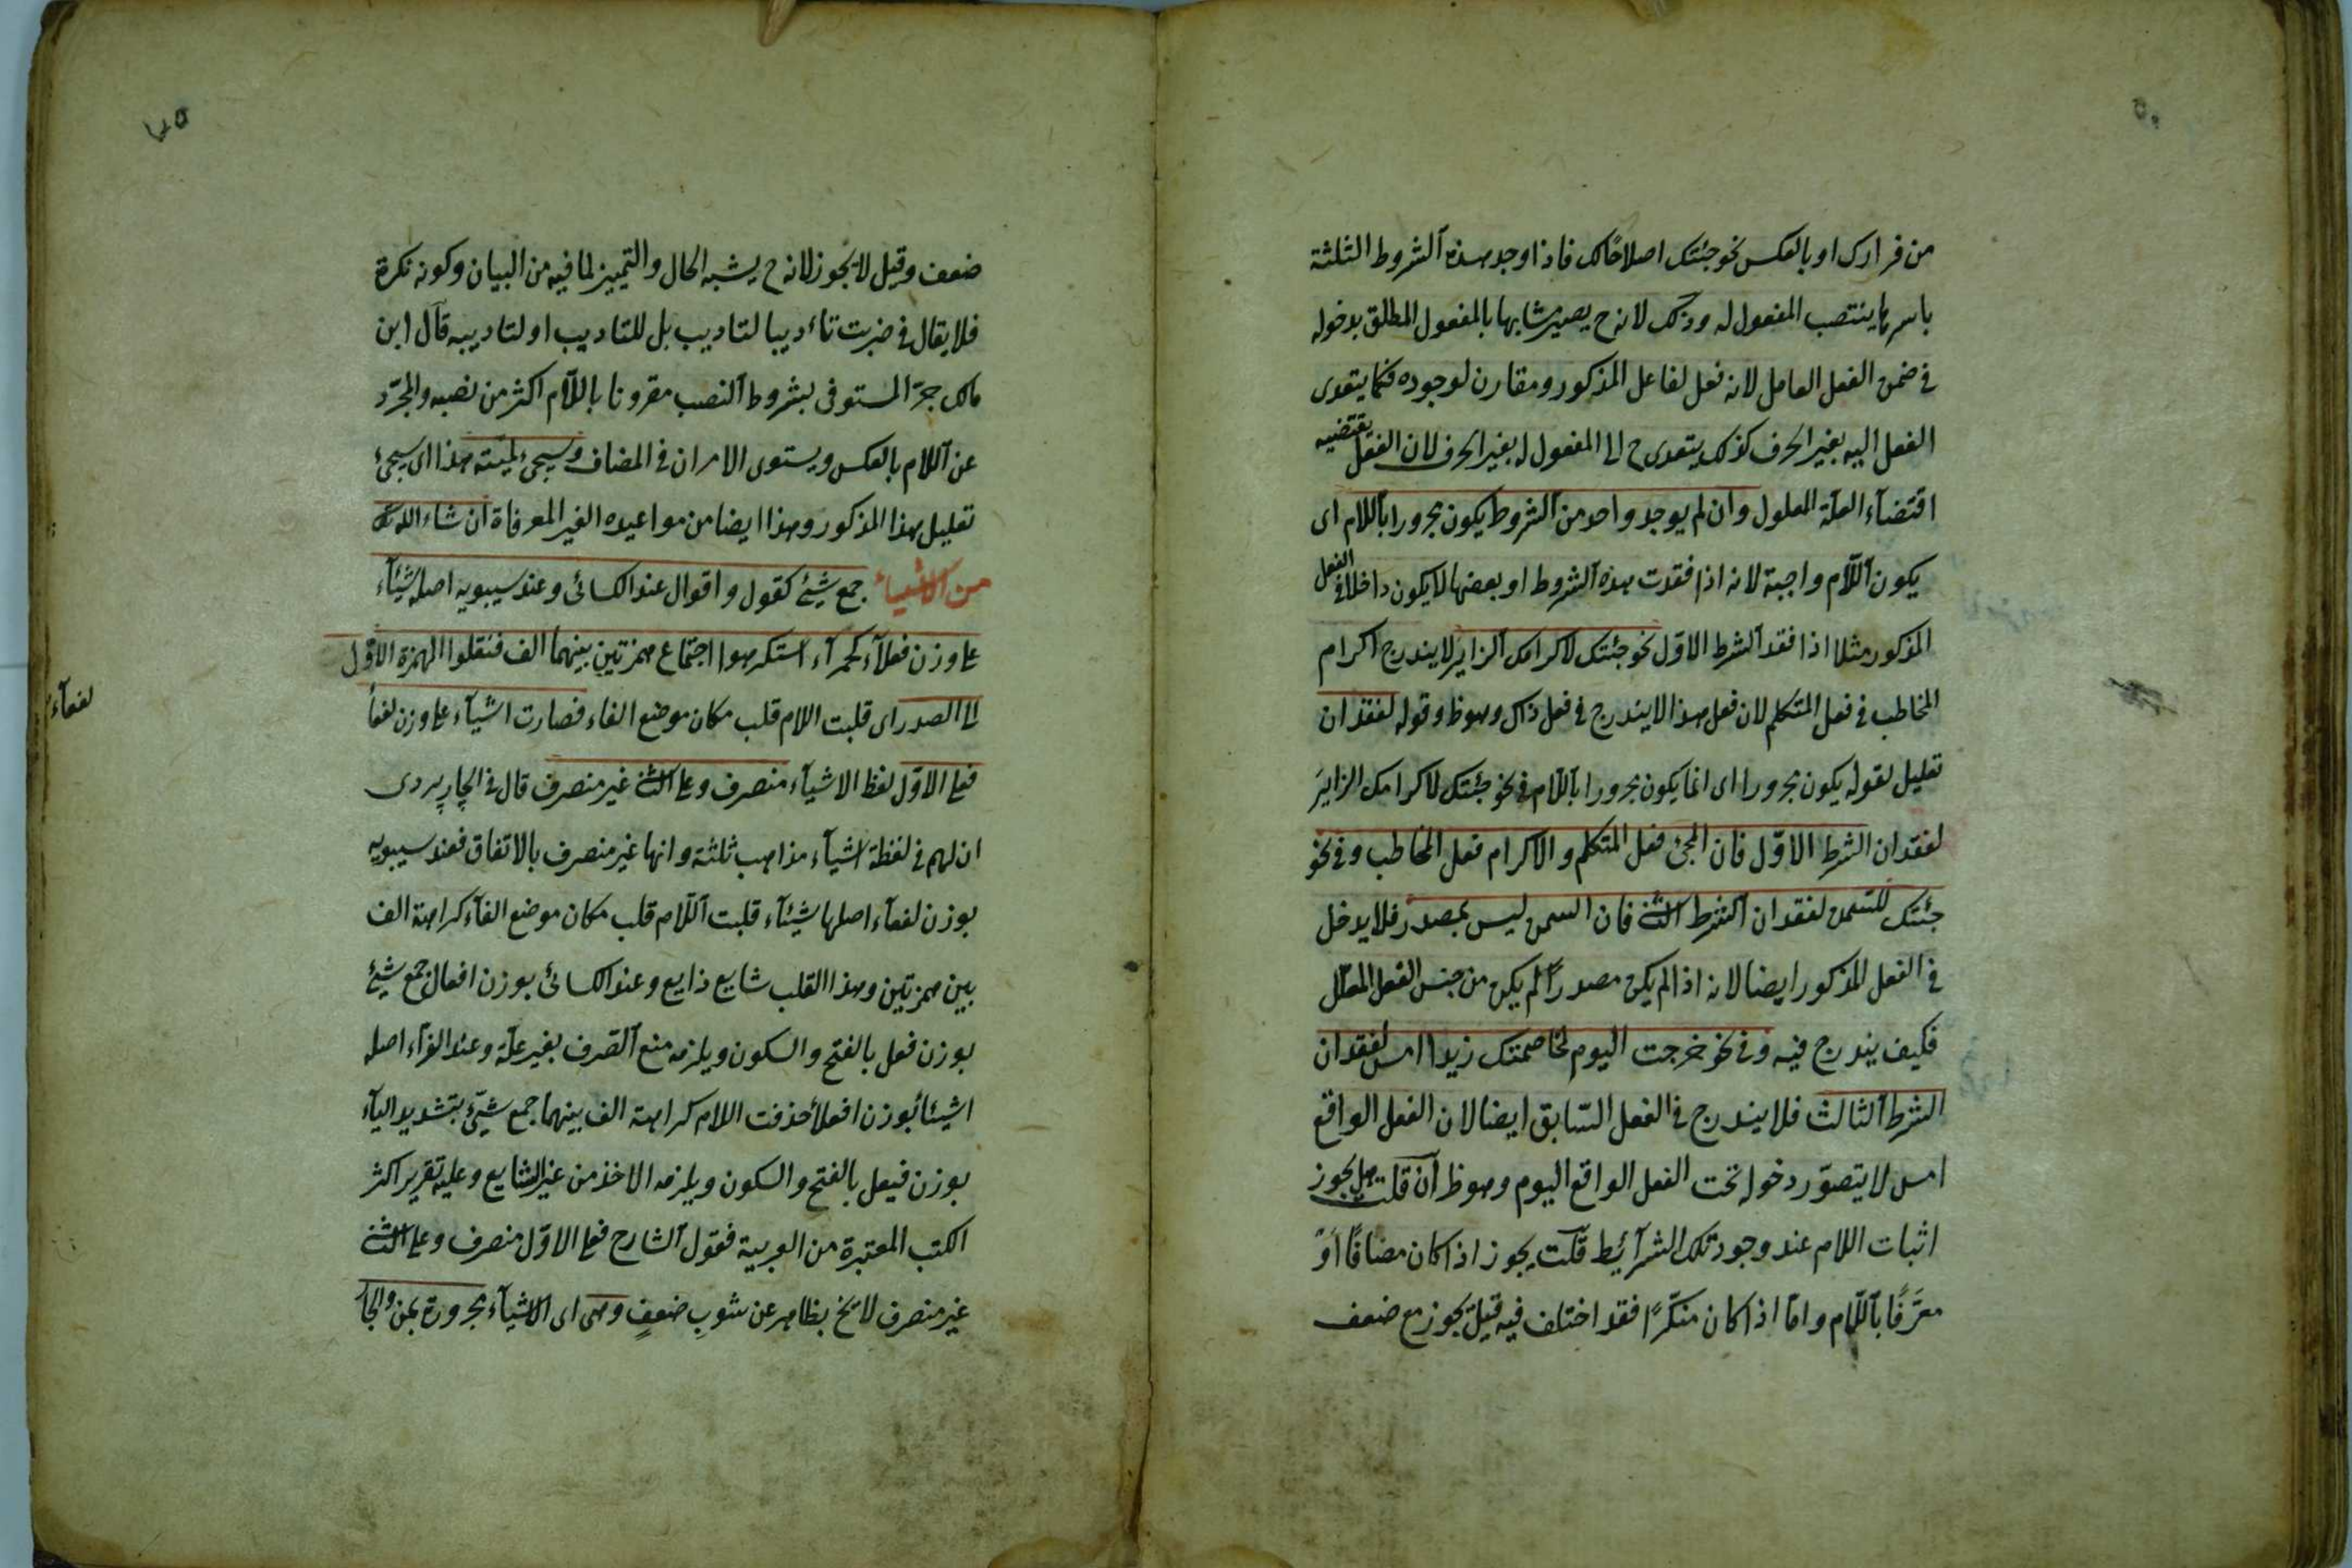 من فرارك او بالعكس نحو جئتك اصلاحًا لك فاذا وجد هذه الشروط الثلثة
باسرها ينتصب المفعول له وذلك لانه ح يصير مشابها بالمفعول المطلق بدخوله
في ضمن الفعل العامل لانه فعل لفاعل المذكور ومقارن لوجوده فكما يتعدى
الفعل اليه بغير الحرف كذلك يتعدى ح الى المفعول له بغير الحرف لان الفعل يقتضيه
اقتضاء العلة المعلول وان لم يوجد واحد من الشروط يكون مجرورا باللام اى
يكون اللام واجبة لانه اذا فقدت هذه الشروط او بعضها لا يكون داخلا في الفعل
المذكور مثلا اذا فقد الشرط الاول نحو جئتك لاكرامك الزاير لا يندرج اكرام
المخاطب في فعل المتكلم لان فعل هذا لا يندرج في فعل ذاك وهو ظ وقوله لفقدان
تعليل لقوله يكون مجرورا اى انما يكون مجرورا باللام في نحو جئتك لاكرامك الزاير
لفقدان الشرط الاول فان المجئ فعل المتكلم والاكرام فعل المخاطب وفي نحو
جئتك للسمن لفقدان الشرط الثانى فان السمن ليس بمصدر فلا يدخل
في الفعل المذكور ايضا لانه اذا لم يكن مصدرًا لم يكن من جنس الفعل المعلّل
فكيف يندرج فيه وفي نحو خرجت اليوم لمخاصمتك زيدا امس لفقدان
الشرط الثالث فلا يندرج في الفعل السّابق ايضا لان الفعل الواقع
امس لا يتصوّر دخوله تحت الفعل الواقع اليوم وهو ظ ان قلت هل يجوز
اثبات اللام عند وجود تلك الشرائط قلت يجوز اذا كان مضافًا او
معرّفًا باللّام وامّا اذا كان منكّرًا فقد اختلف فيه قيل يجوز مع ضعف
ضعف وقيل لا يجوز لانه ح يشبه الحال والتمييز لما فيه من البيان وكونه نكرة
فلا يقال في ضربت تاءديبا لتاديب بل للتاديب او لتاديبه قال ابن
مالك جرّ المستوفى بشروط النصب مقرونا باللّام اكثر من نصبه والمجرّد
عن اللام بالعكس ويستوى الامران في المضاف وسيجئ لميّته هذا اى سيجئ
تعليل هذا المذكور وهذا ايضا من مواعيده الغير المعرفاة ان شاء الله تعالى
من الاشياء جمع شيئ كقول واقوال عند الكسائى وعند سيبويه اصله شيئاء
على وزن فعلاء كحمراء استكرهوا اجتماع همزتين بينهما الف فنقلوا الهمزة الاول
الى الصدر اى قلبت اللام قلب مكان موضع الفاء فصارت اشياء على وزن لفعا
لفعاء
فعلى الاوّل لفظ الاشياء منصرف وعلى الثانى غير منصرف قال في الچارپردى
ان لهم في لفظة اشياء مذاهب ثلثة وانها غير منصرف بالاتفاق فعند سيبويه
بوزن لفعاء اصلها شيئاء قلبت اللّام قلب مكان موضع الفاء كراهة الف
بين همزتين وهذا القلب شايع ذايع وعند الكسائى بوزن افعال جمع شيئ
بوزن فعل بالفتح والسكون ويلزمه منع الصّرف بغير علّة وعند الفراء اصله
اشيئا بوزن افعلا حذفت اللام كراهة الف بينهما جمع شيّئ بتشديد الياء
بوزن فيعل بالفتح والسكون ويلزمه الاخذ من غير الشايع وعليه تقرير اكثر
الكتب المعتبرة من العربية فقول الشارح فعلى الاوّل منصرف وعلى الثانى
غير منصرف لا يخ بظاهر عن شوبِ ضعفٍ وهى اى الاشياء مجرورة بمن والجار